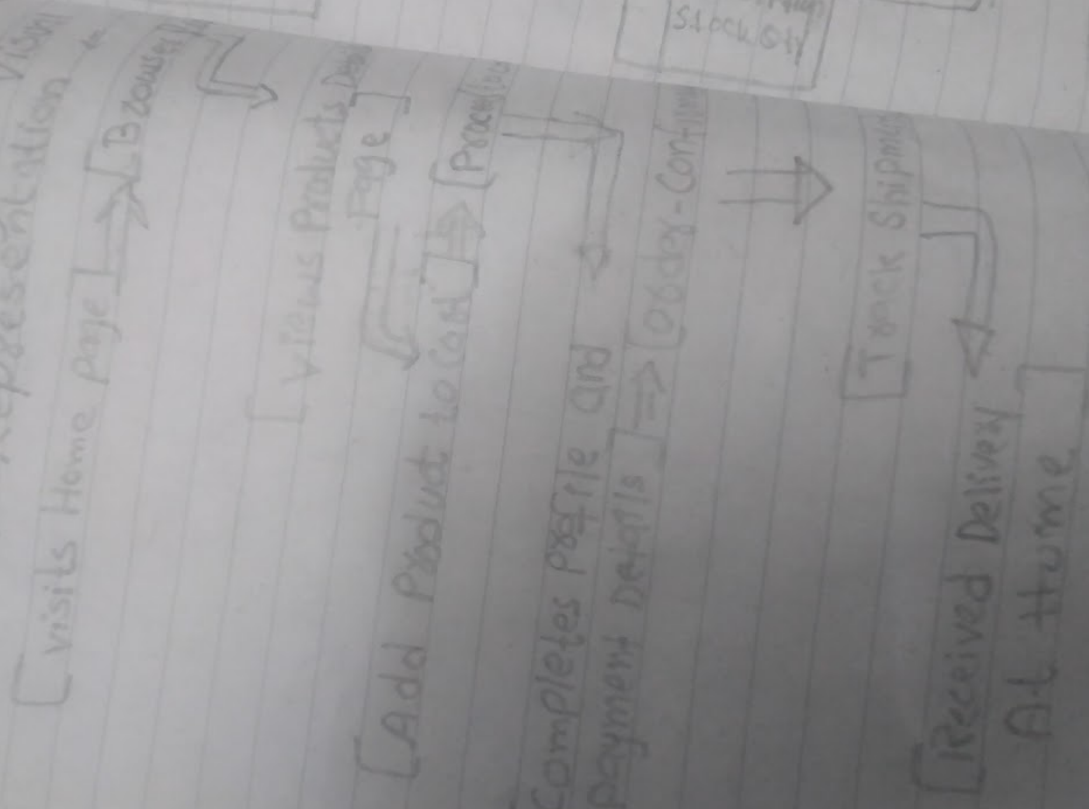 Representation
[visits Home page] → [Browse
[views Products
Page]
[Add Product to Cart] ⇒ [Proce
Completes profile and
Payment Details] ⇒ [Order-Confirm
[Track Shipm
[Received Delivery
At Home]
Stock Ou